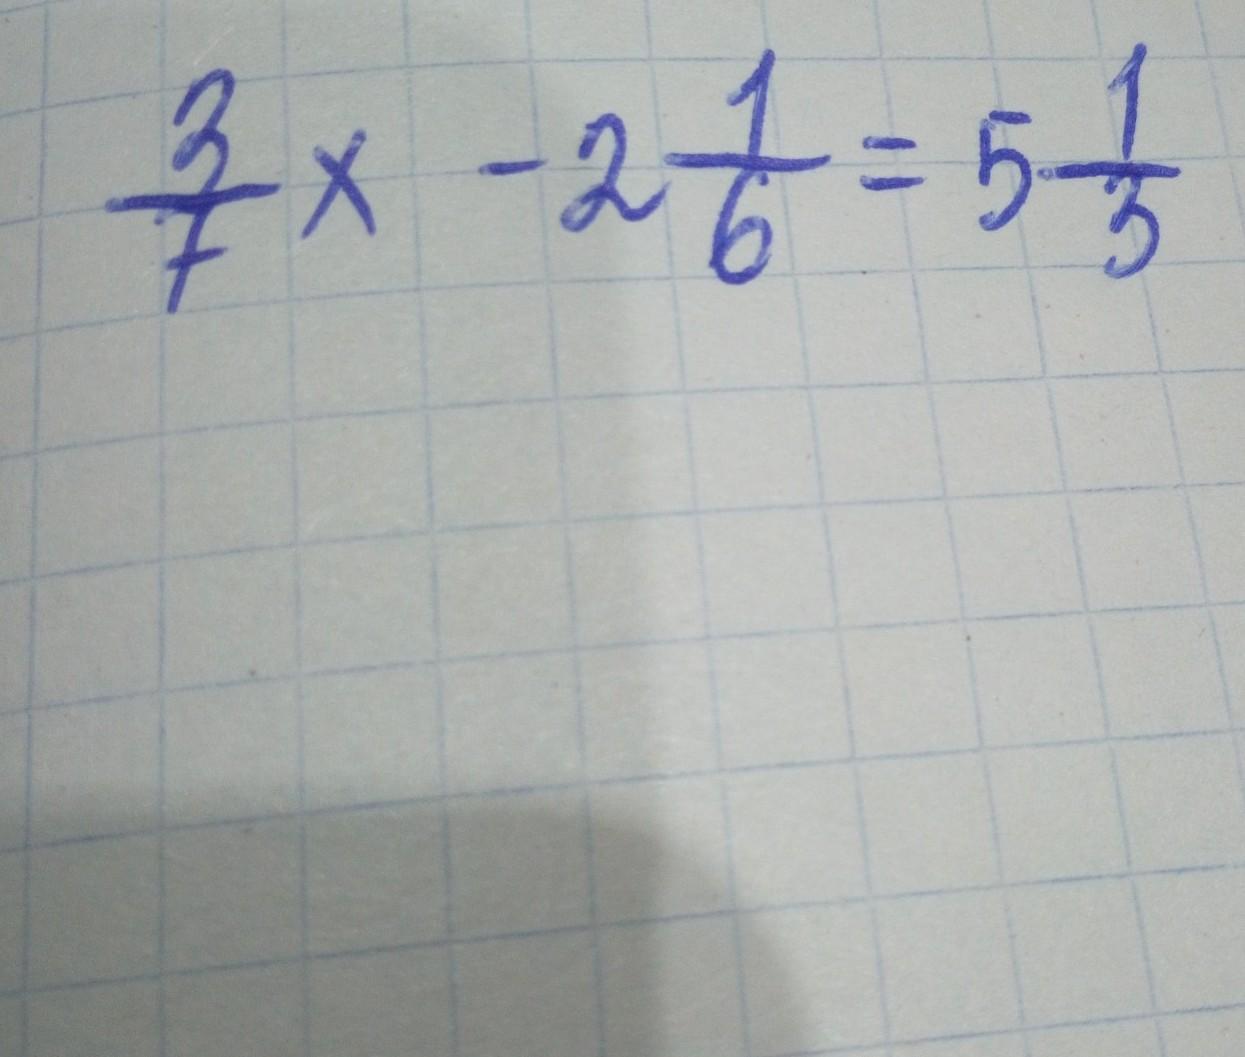 3/7 x - 2 1/6 = 5 1/3